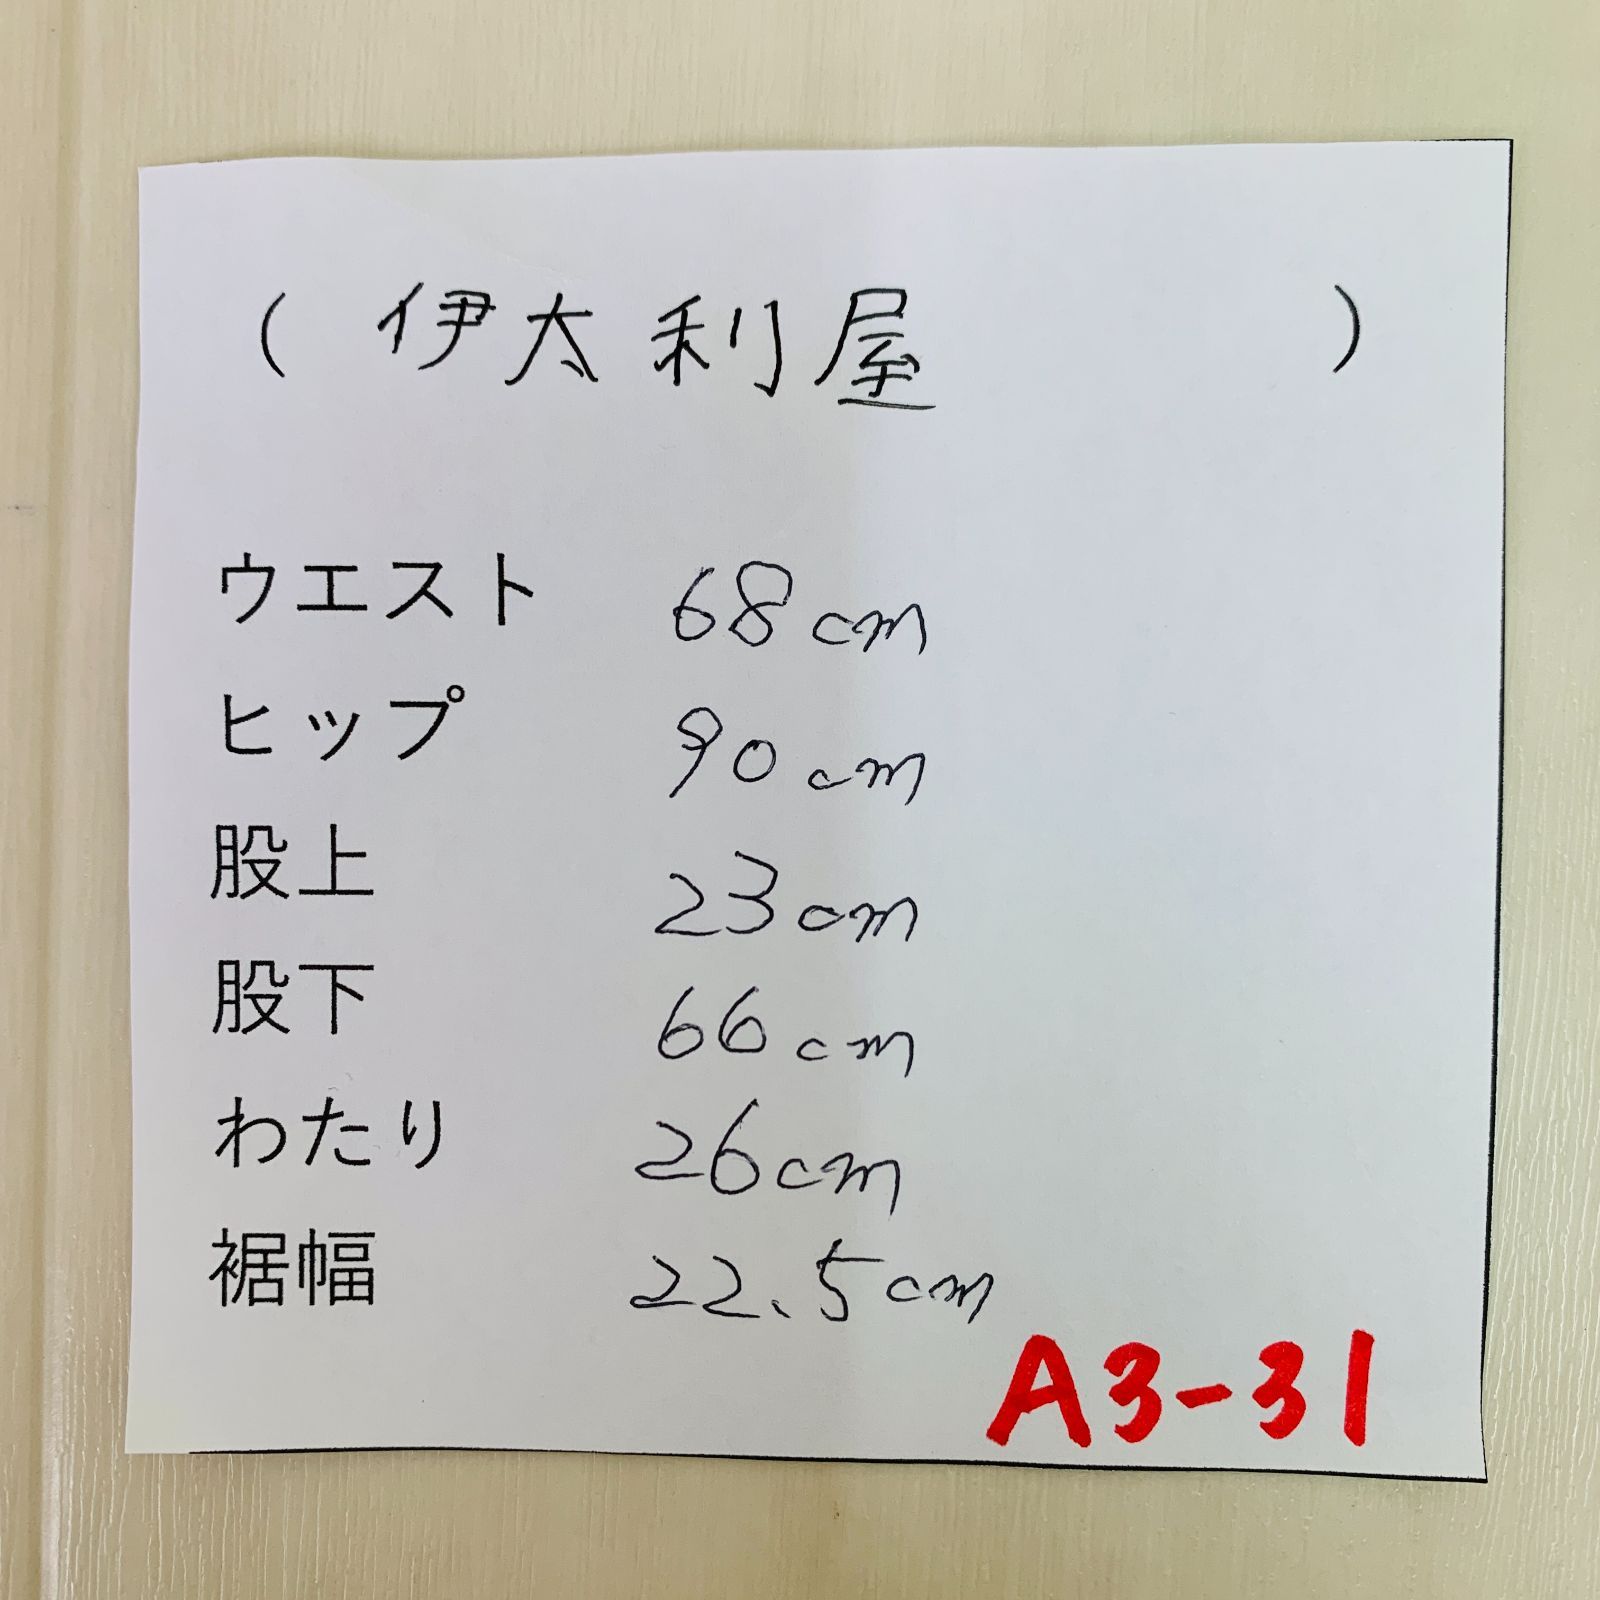 ( 伊太利屋 )
ウエスト 68cm
ヒップ 90cm
股上 23cm
股下 66cm
わたり 26cm
裾幅 22.5cm
A3-31